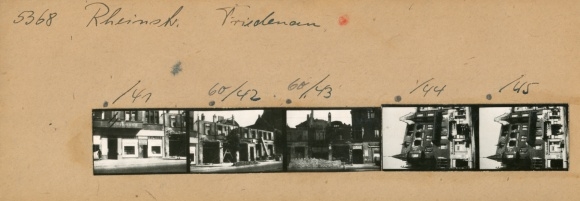 5368 Rheinstr. Friedenau
/41 60/42 60/43 /44 /45